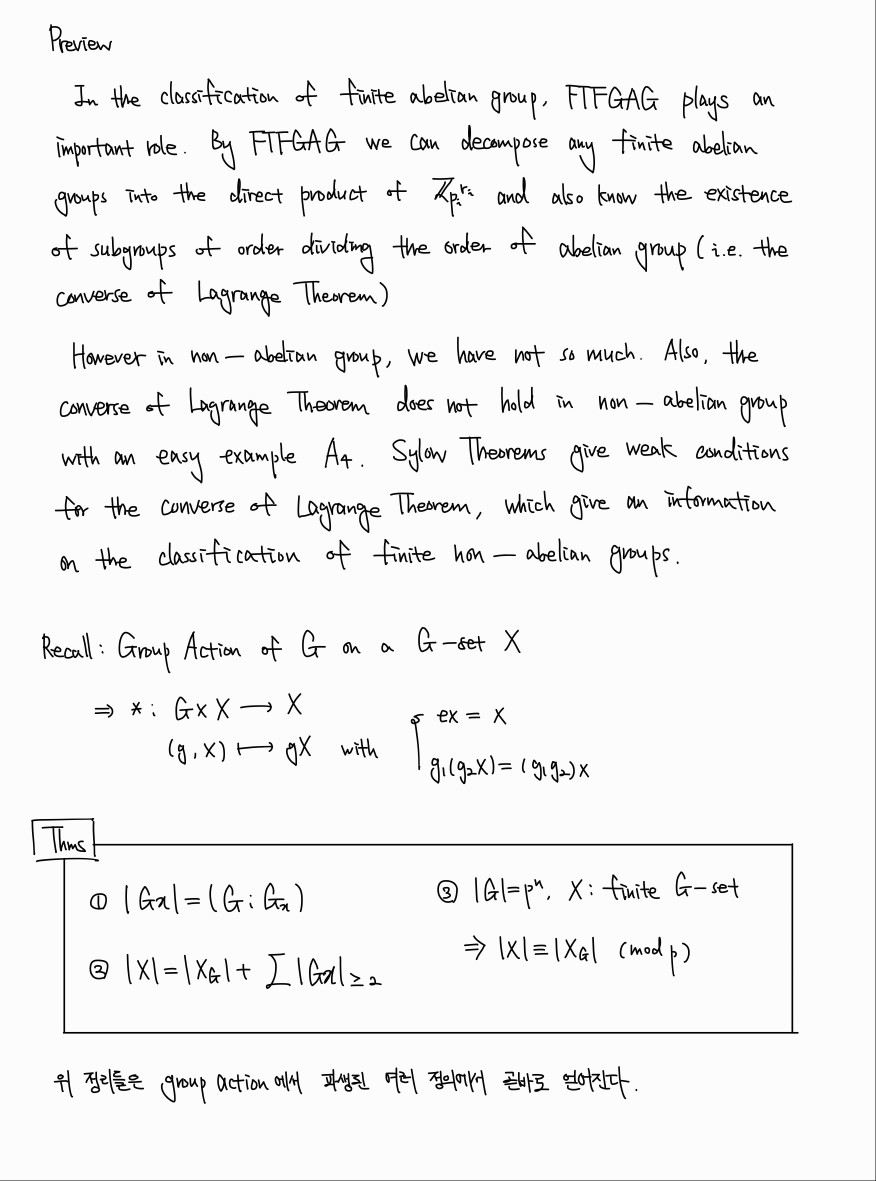 Preview
In the classification of finite abelian group, FTFGAG plays an
important role. By FTFGAG we can decompose any finite abelian
groups into the direct product of ℤ_{p_i^{r_i}} and also know the existence
of subgroups of order dividing the order of abelian group (i.e. the
converse of Lagrange Theorem)
However in non-abelian group, we have not so much. Also, the
converse of Lagrange Theorem does not hold in non-abelian group
with an easy example A₄. Sylow Theorems give weak conditions
for the converse of Lagrange Theorem, which give an information
on the classification of finite non-abelian groups.
Recall: Group Action of G on a G-set X
⇒ *: G×X ⟶ X
(g, x) ⟼ gx with
ex = x
g₁(g₂x) = (g₁g₂)x
Thms
① |Gx| = (G : Gₓ)
② |X| = |X_G| + ∑|Gx|_{≥2}
③ |G| = pⁿ, X: finite G-set
⇒ |X| ≡ |X_G| (mod p)
위 정리들은 group action에서 파생된 여러 정의에서 곧바로 얻어진다.